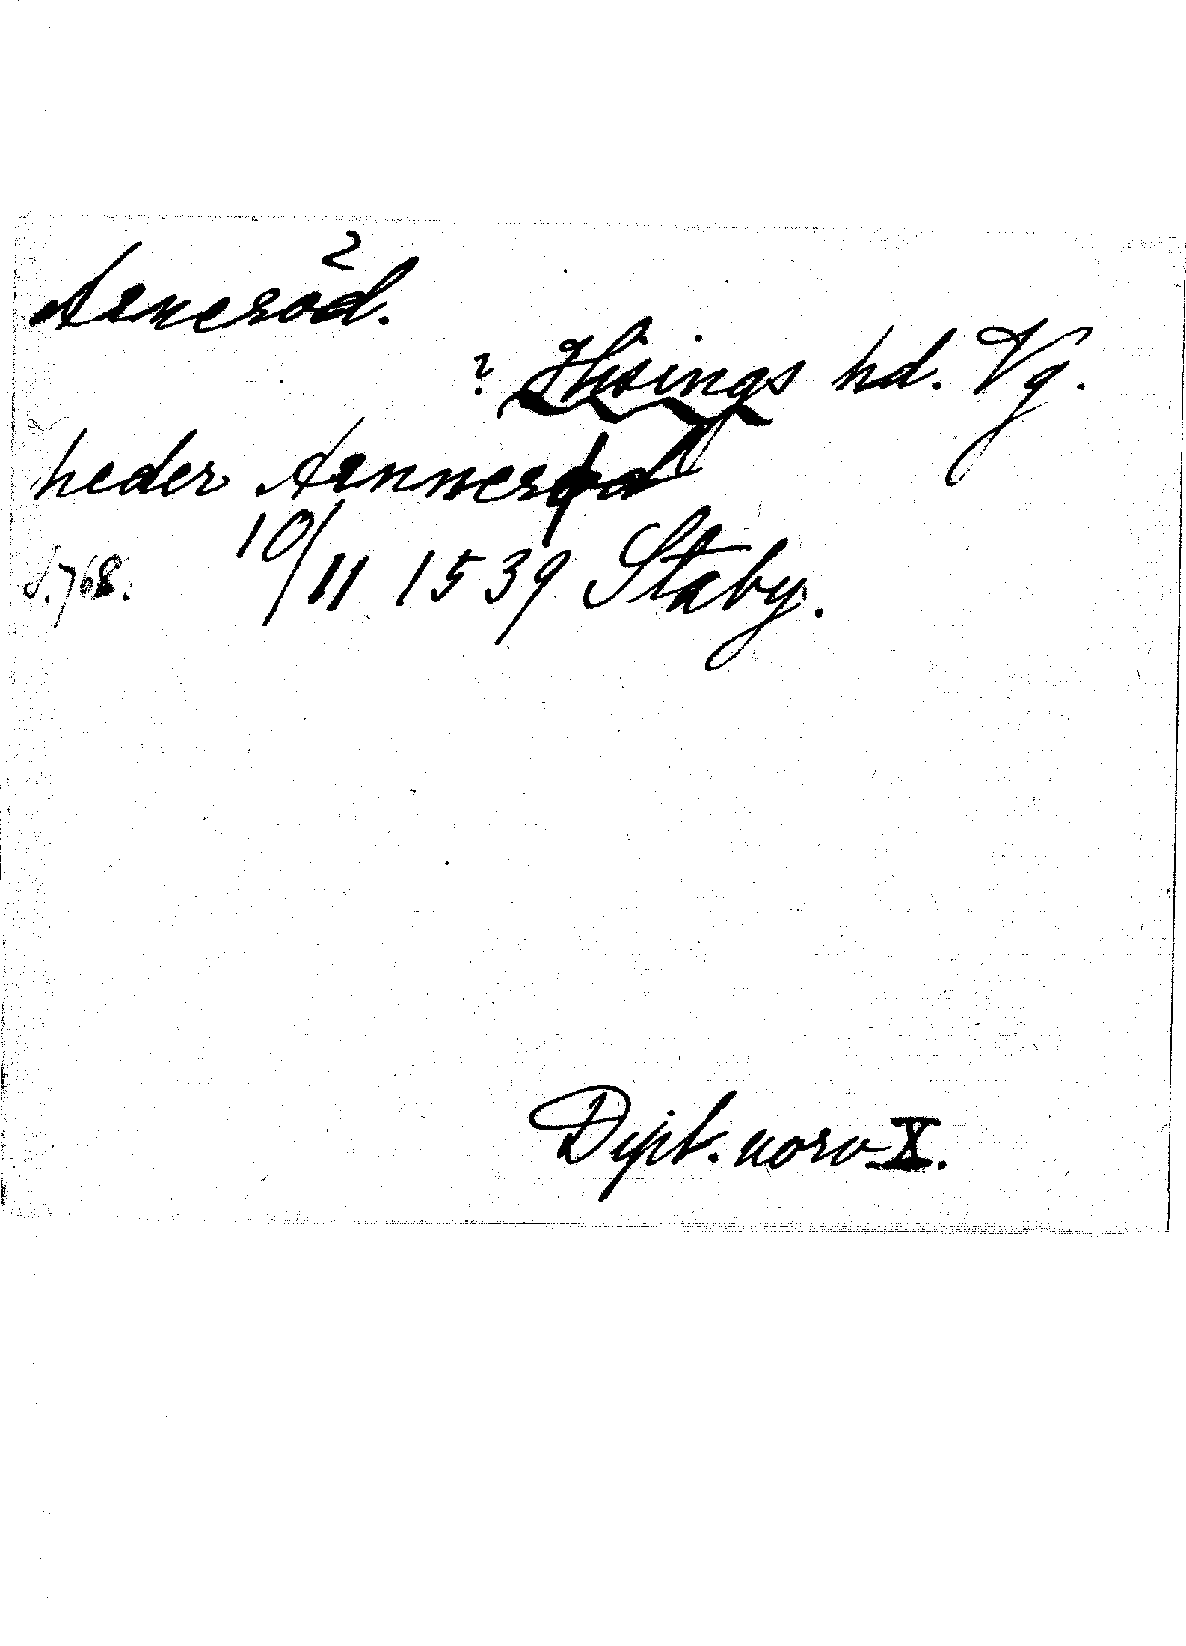 Arneröd.
? Hisings hd. Vg.
heder Arnnerød
S. 768. 10/11 1539 Staby.
Dipl. norv X.